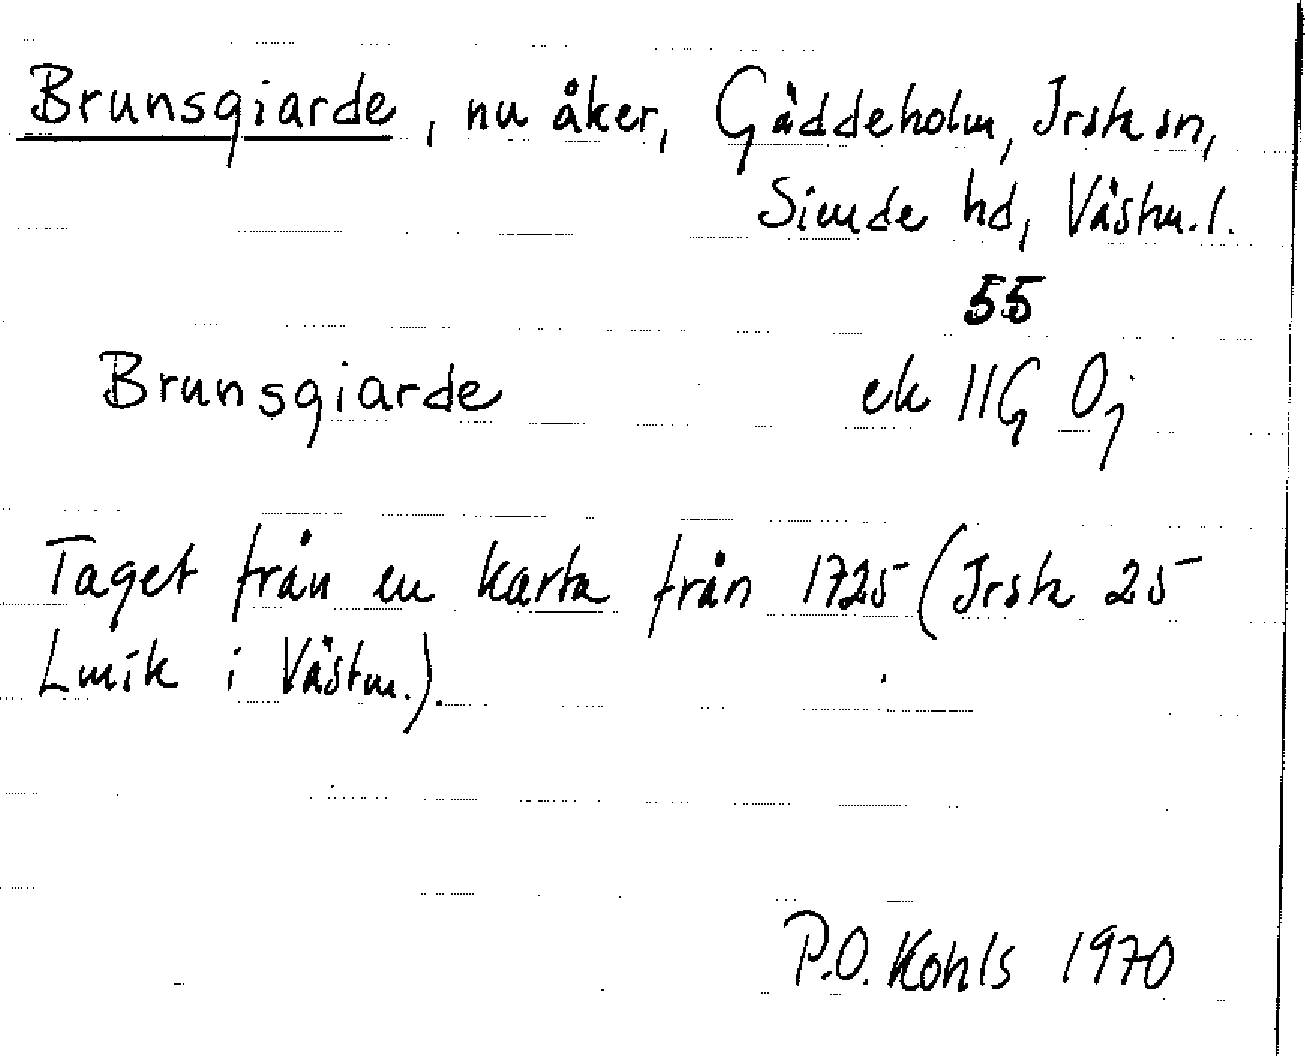 Brunsgiarde, nu åker, Gäddeholm, Irsta sn,
Simde hd, Västm. l.
55
Brunsgiarde ek 11G 0j
Taget från en karta från 1725 (Irsta 25
Lmik i Västm.).
P.O. Kohls 1970